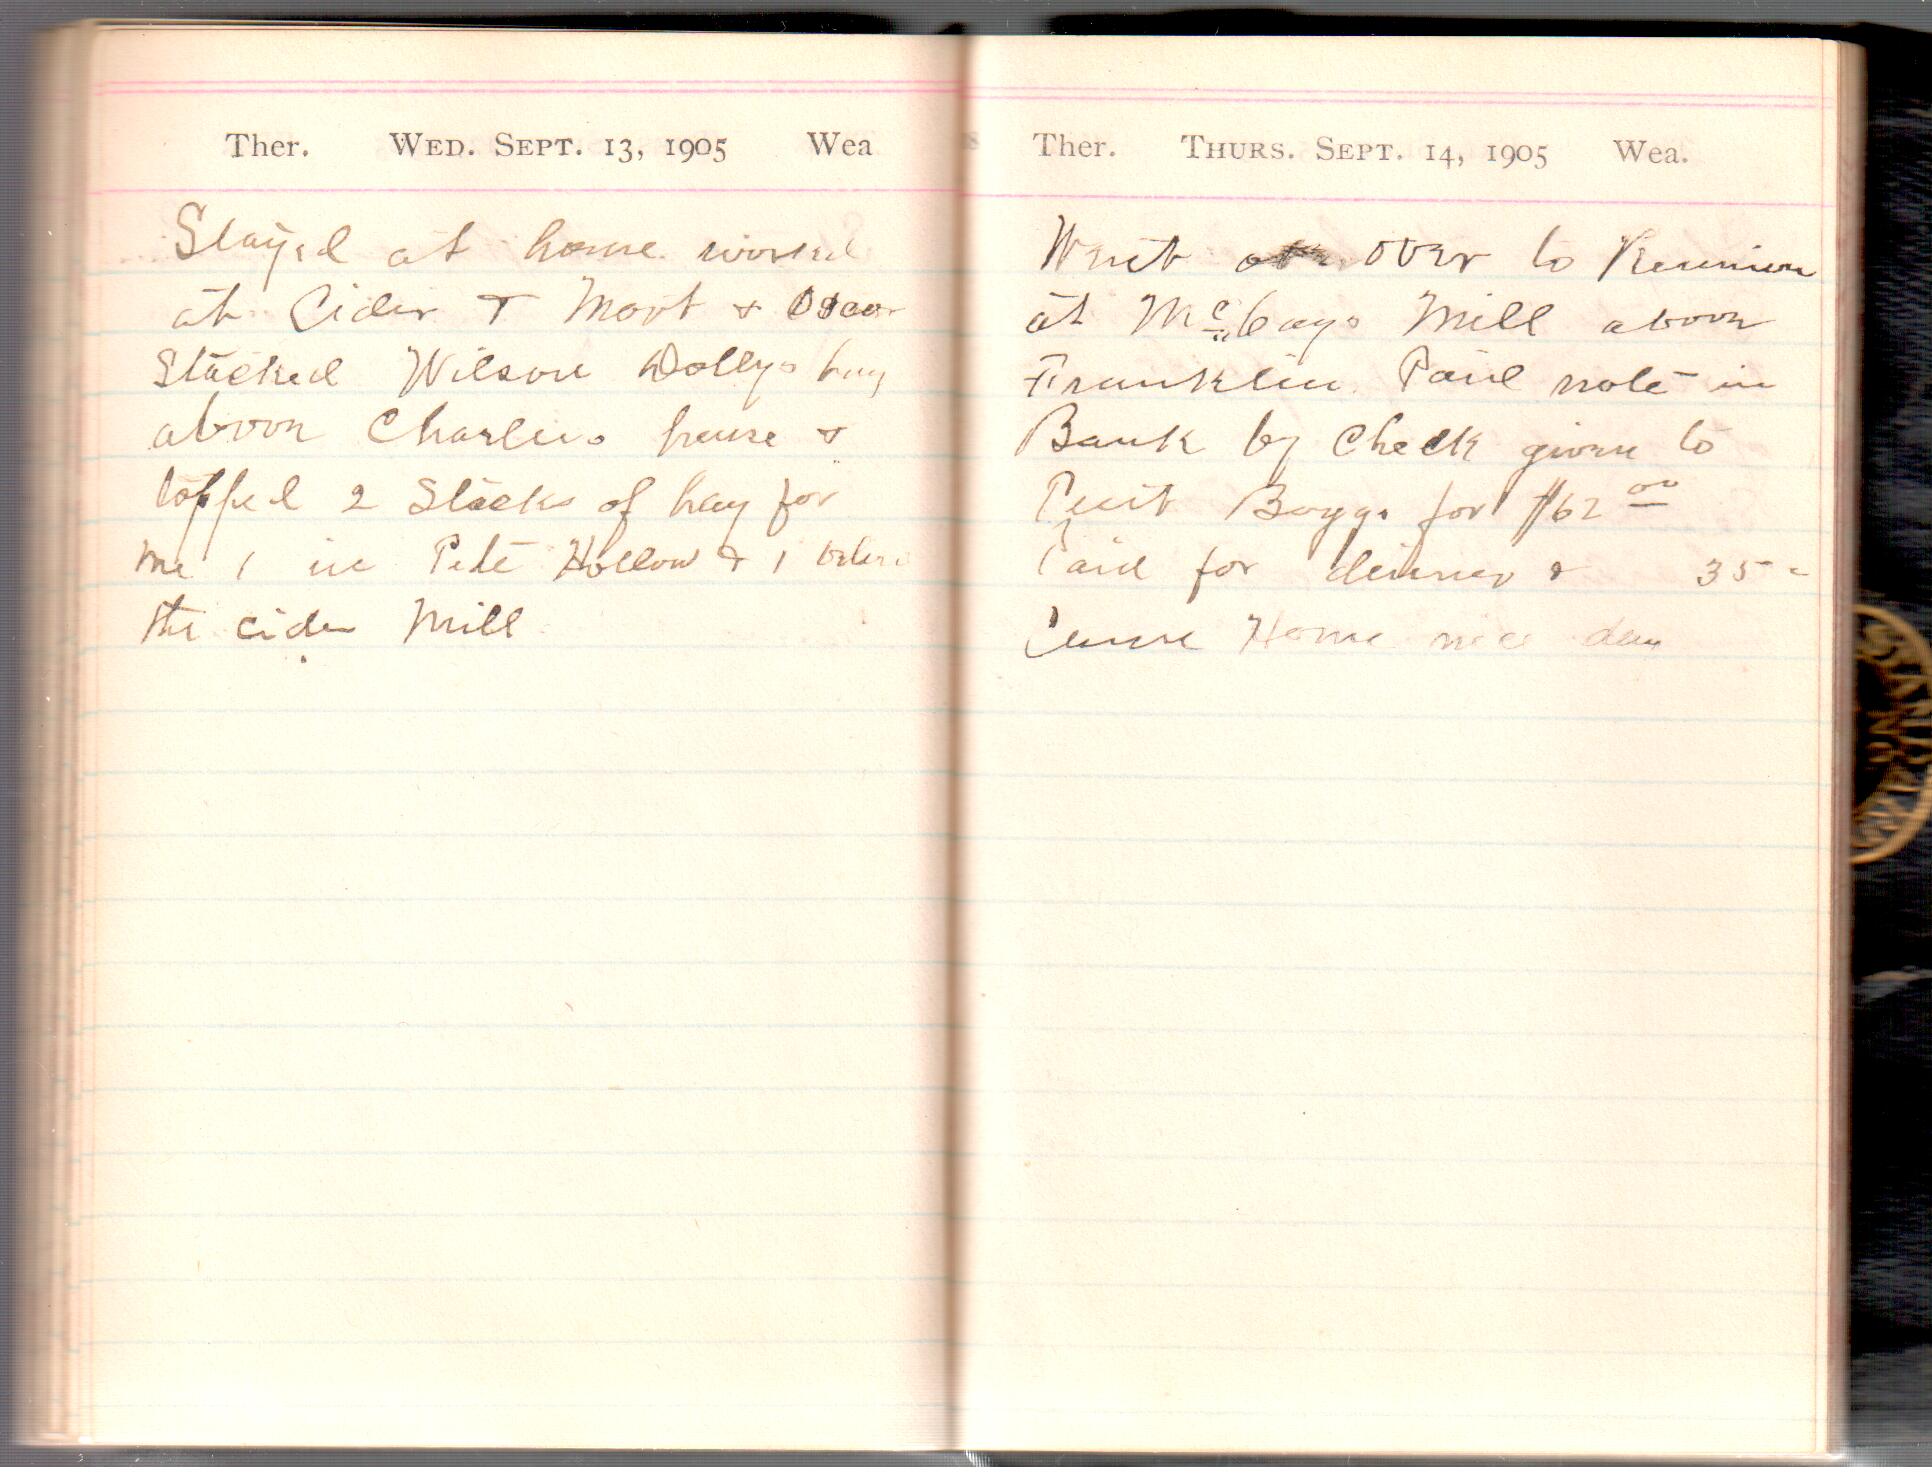 Ther. WED. SEPT. 13, 1905 Wea
Stayed at home worked
at Cider & Mort & Oscar
Stacked Wilson Dollys hay
above Charleys house &
topped 2 Stacks of hay for
me 1 in Pete Hollow & 1 below
the cider Mill
Ther. THURS. SEPT. 14, 1905 Wea.
Went over to Reunion
at McCoys Mill above
Franklin Paid note in
Bank by Check given to
Boggs for $62 00
Paid for dinner & 35 c
Came Home nice day